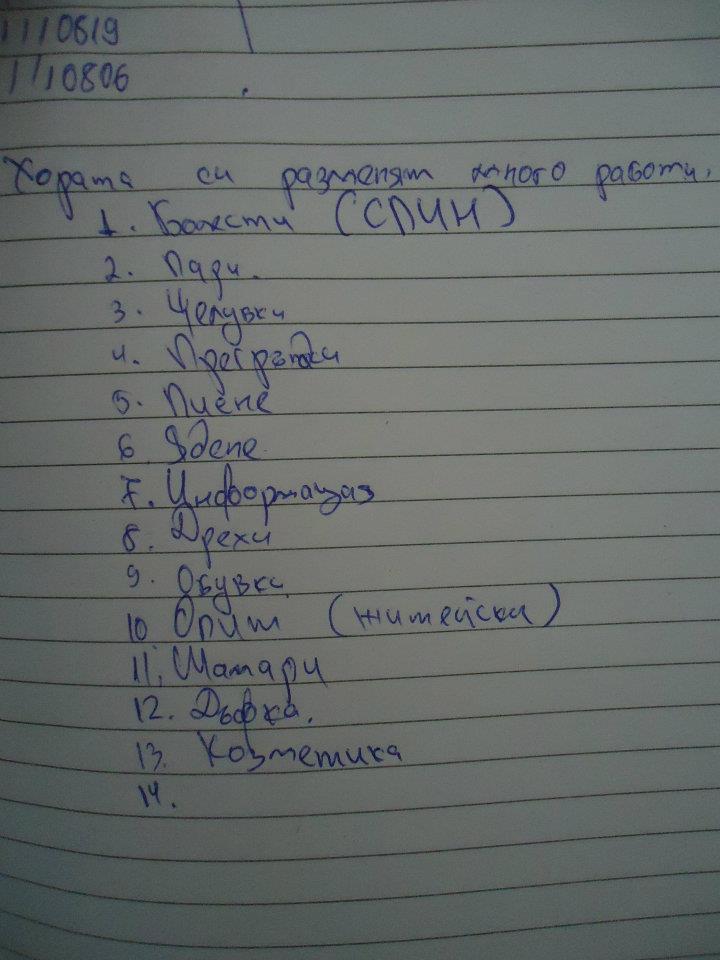 1110619
1110806
Хората си разменят много работи.
1. Болести (СПИН)
2. Пари.
3. Целувки
4. Прегръдки
5. Пиене
6 Ядене.
7. Информация
8. Дрехи
9. Обувки
10 Опит (житейски)
11. Шамари
12. Дъфка.
13. Козметика
14.